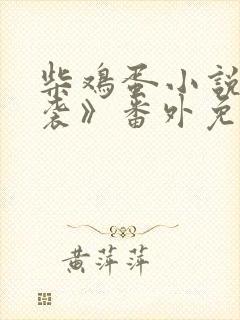 柴鸡蛋小说
袭》番外免
黄萍萍